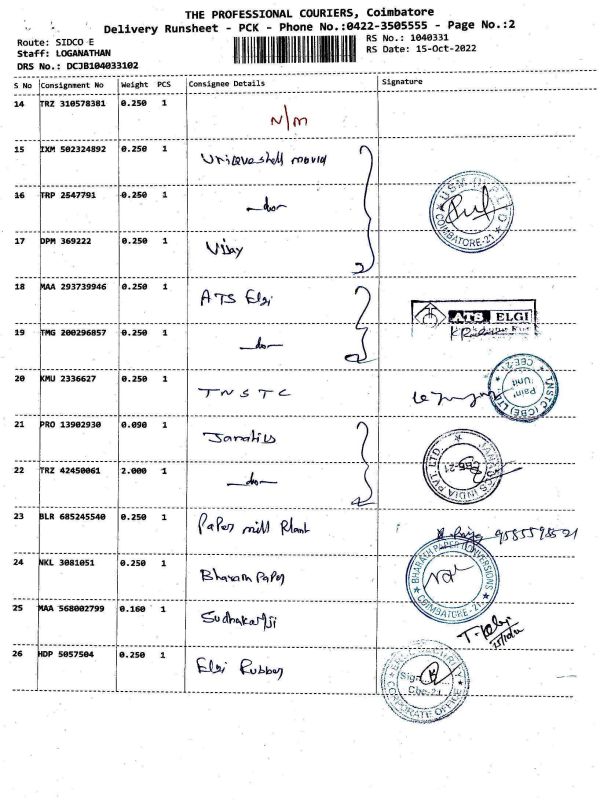 THE PROFESSIONAL COURIERS, Coimbatore
Delivery Runsheet - PCK - Phone No.:0422-3505555 - Page No.:2
Route: SIDCO E
RS No.: 1040331
Staff: LOGANATHAN
RS Date: 15-Oct-2022
DRS No.: DCJB104033102
S No Consignment No Weight PCS Consignee Details Signature
14 TRZ 310578381 0.250 1 N/M
15 IXM 502324892 0.250 1
16 TRP 2547791 0.250 1 -do-
COIMBATORE-21
17 DPM 369222 0.250 1 Vijay
18 MAA 293739946 0.250 1 ATS Elgi
ATS ELGI
19 TMG 200296857 0.250 1 -do-
20 KMU 2336627 0.250 1 TNSTC
TNSTC (CBE) LTD. CBE-21 Paint Unit
21 PRO 13902930 0.090 1
22 TRZ 42450061 2.000 1 -do-
INDIA PVT. LTD. CBE-21
23 BLR 685245540 0.250 1 Paper mill Plant
24 NKL 3081051 0.250 1 Bharam Paper
BHARATH PAPER CONVERSIONS COIMBATORE-21
25 MAA 568002799 0.160 1
26 HDP 5057504 0.250 1 Elgi Rubber
SECURITY Sign Cbe-21 CORPORATE OFFICE